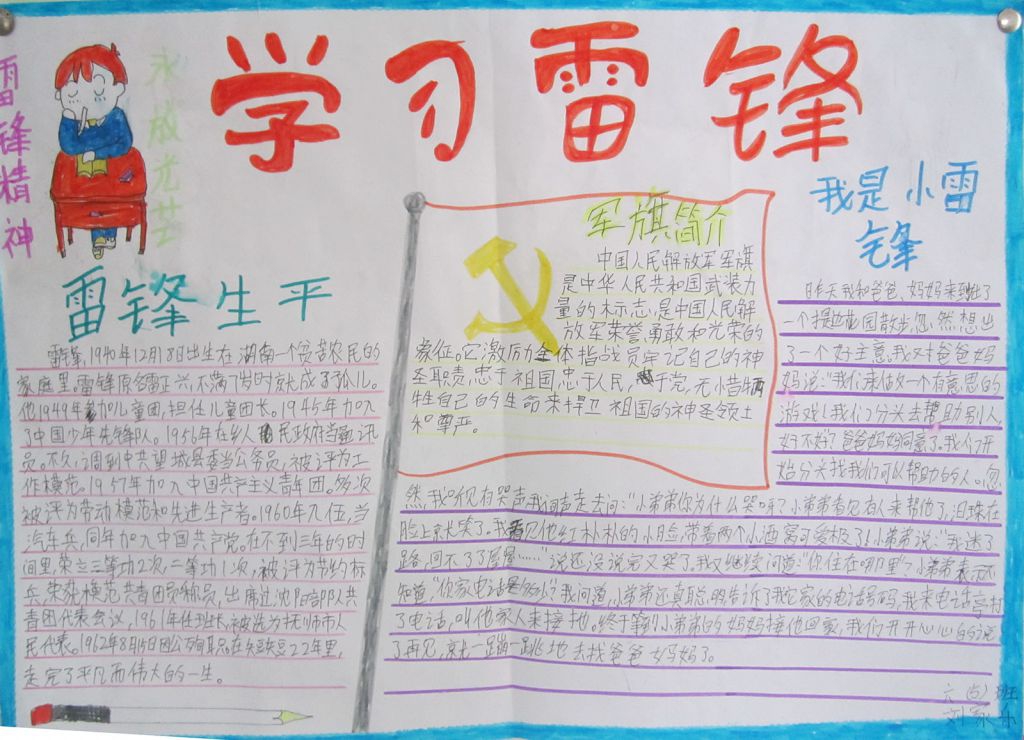 学习雷锋
雷锋精神
永放光芒
雷锋生平
雷锋,1940年12月18日出生在湖南一个贫苦农民的
家庭里。雷锋原名雷正兴,不满7岁时就成了孤儿。
他1949年参加儿童团,担任儿童团长。1945年加入
了中国少年先锋队。1956年在乡人民政府当通讯
员。不久,调到中共望城县委当公务员,被评为工
作模范。1957年加入中国共产主义青年团。多次
被评为劳动模范和先进生产者。1960年入伍,当
汽车兵,同年加入中国共产党。在不到三年的时
间里,荣立三等功2次,二等功1次,被评为节约标
兵,荣获模范共青团员称号,出席过沈阳部队共
青团代表会议,1961年任班长,被选为抚顺市人
民代表。1962年8月15日因公殉职。在短短22年里,
走完了平凡而伟大的一生。
军旗简介
中国人民解放军军旗
是中华人民共和国武装力
量的标志,是中国人民解
放军荣誉,勇敢和光荣的
象征。它激励全体指战员牢记自己的神
圣职责,忠于祖国,忠于人民,于党,无惜牺
牲自己的生命来捍卫祖国的神圣领土
和尊严。
我是小雷
锋
昨天,我和爸爸、妈妈来到
一个提边花园散步,忽然想出
了一个好主意,我对爸爸妈
妈说:“我们来做一个有意思的
游戏!我们分头去帮助别人,
好不好?”爸爸妈妈同意了。我们开
始分头找我们可以帮助的人。忽
然,我听见有哭声,我闻声走去问:“小弟弟你为什么哭呀?”小弟弟看见有人来帮他了,泪珠在
脸上就大笑了。我看见他红朴朴的小脸,带着两个小酒窝可爱极了!小弟弟说:“我迷了
路,回不了了……”说还没说完又哭了。我又继续问道:“你住在哪里?”小弟弟表示不
知道,“你家电话是多少?”我问道,小弟弟还真聪明告诉了我它家的电话号码,我来电话亭打
了电话,叫他家人来接他。终于等到小弟弟的妈妈接他回家,我们开开心心的说
了再见,就一蹦一跳地去找爸爸妈妈了。
六(5)班
刘家